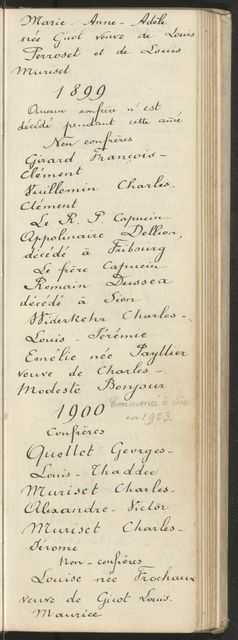 Marie-Anne-Adèle
née Guot veuve de Louis
Perroset et de Louis
Muriset
1899
Aucun confrère n'est
décédé pendant cette année
Non confrères
Girard François-
Clément
Vuillemin Charles-
Clément
Le R. P Capucin
Appolinaire Dellion,
décédé à Fribourg
Le frère Capucin
Romain Dussex
décédé à Sion
Widerkehr Charles-
Louis-Jérémie
Emélie née Payllier
veuve de Charles-
Modeste Bonjour
1900
Commencé à lire
en 1923.
Confrères
Quellet Georges-
Louis-Thaddée
Muriset Charles-
Alexandre-Victor
Muriset Charles-
Jérome
Non-confrères
Louise née Frochaux
veuve de Guot Louis-
Maurice